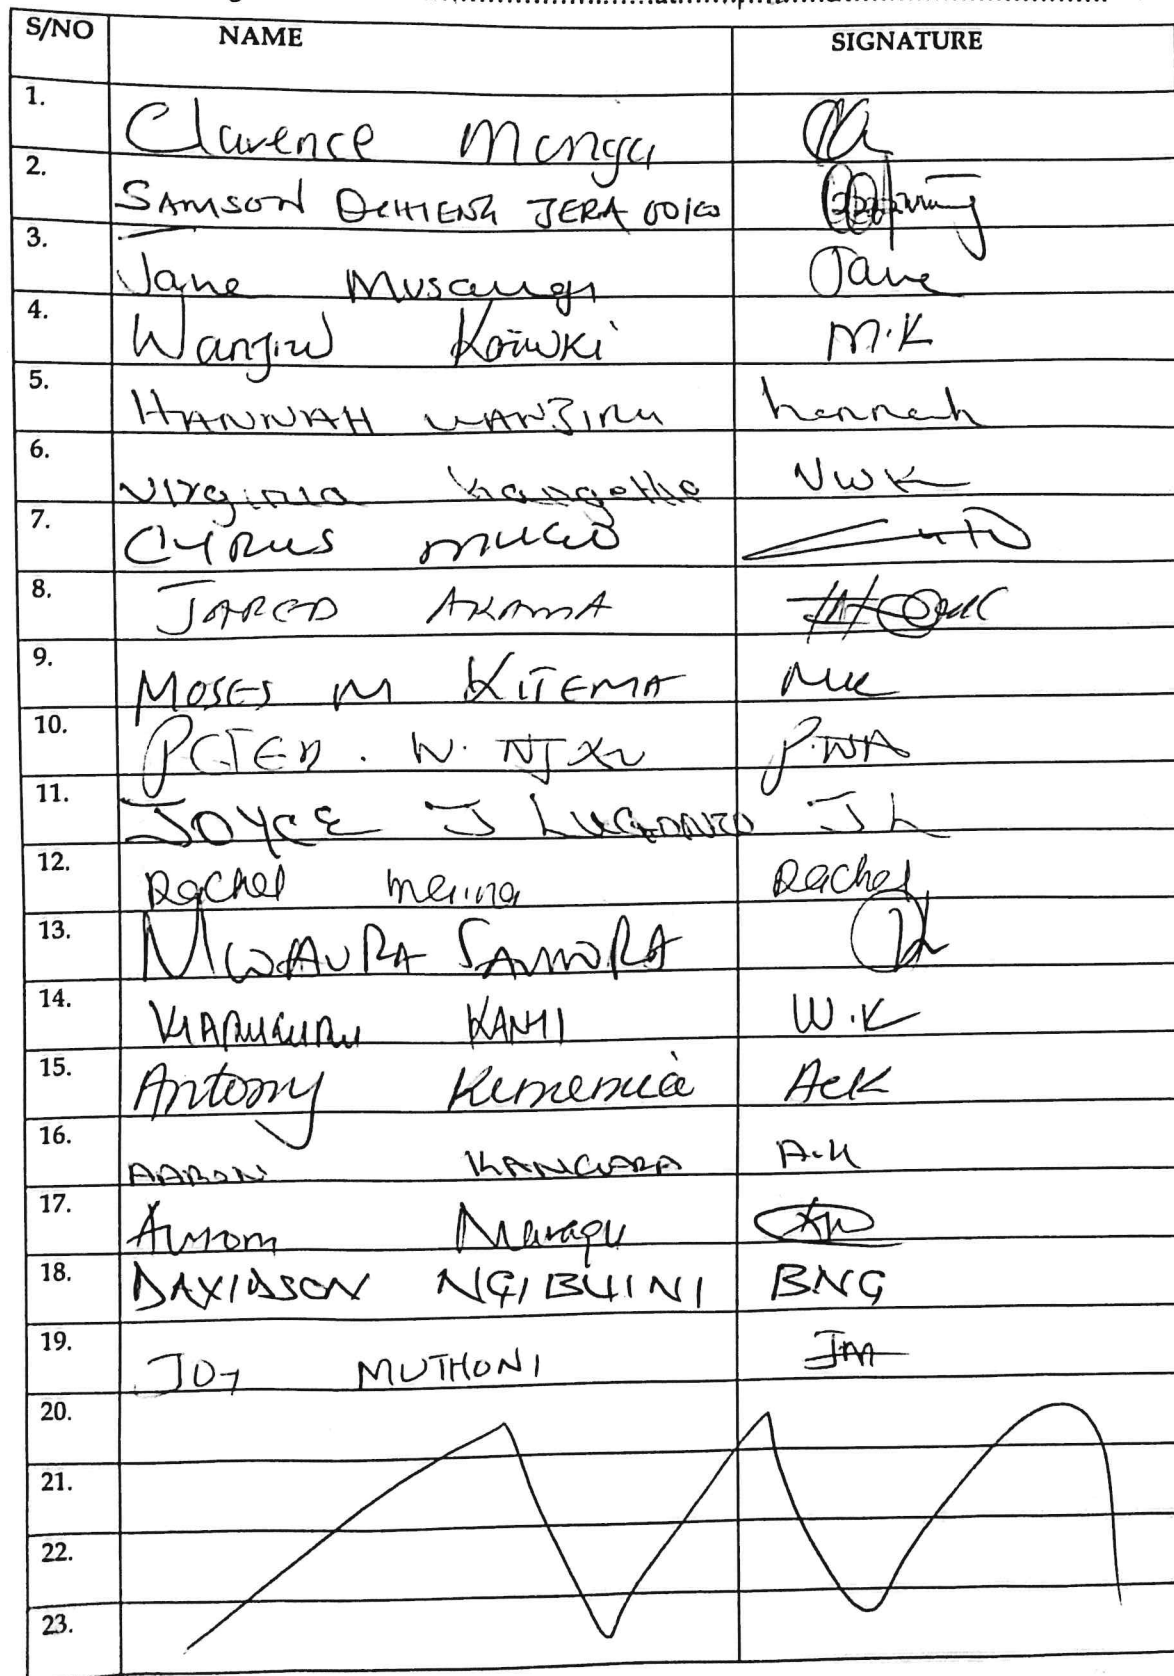 S/NO NAME SIGNATURE
1. Clarence Manga
2. SAMSON OCHIENG JERA
3. Jane Musaungi Jane
4. Wanjiru Kariuki M.K
5. HANNAH WANJIRU hannah
6. Virginia NWK
7. CYRUS MUGO
8. JARED AKAMA
9. MOSES M KITEMA MK
10. PETER. W.
11. JOYCE J LUGONZO J L
12. Rachel Rachel
13. MWAURA
14. W.K
15. Antony Kimemia AcK
16. AARON KANGARA A.K
17.
18. DAVIDSON NGIBUINI BNG
19. JOY MUTHONI JM
20.
21.
22.
23.